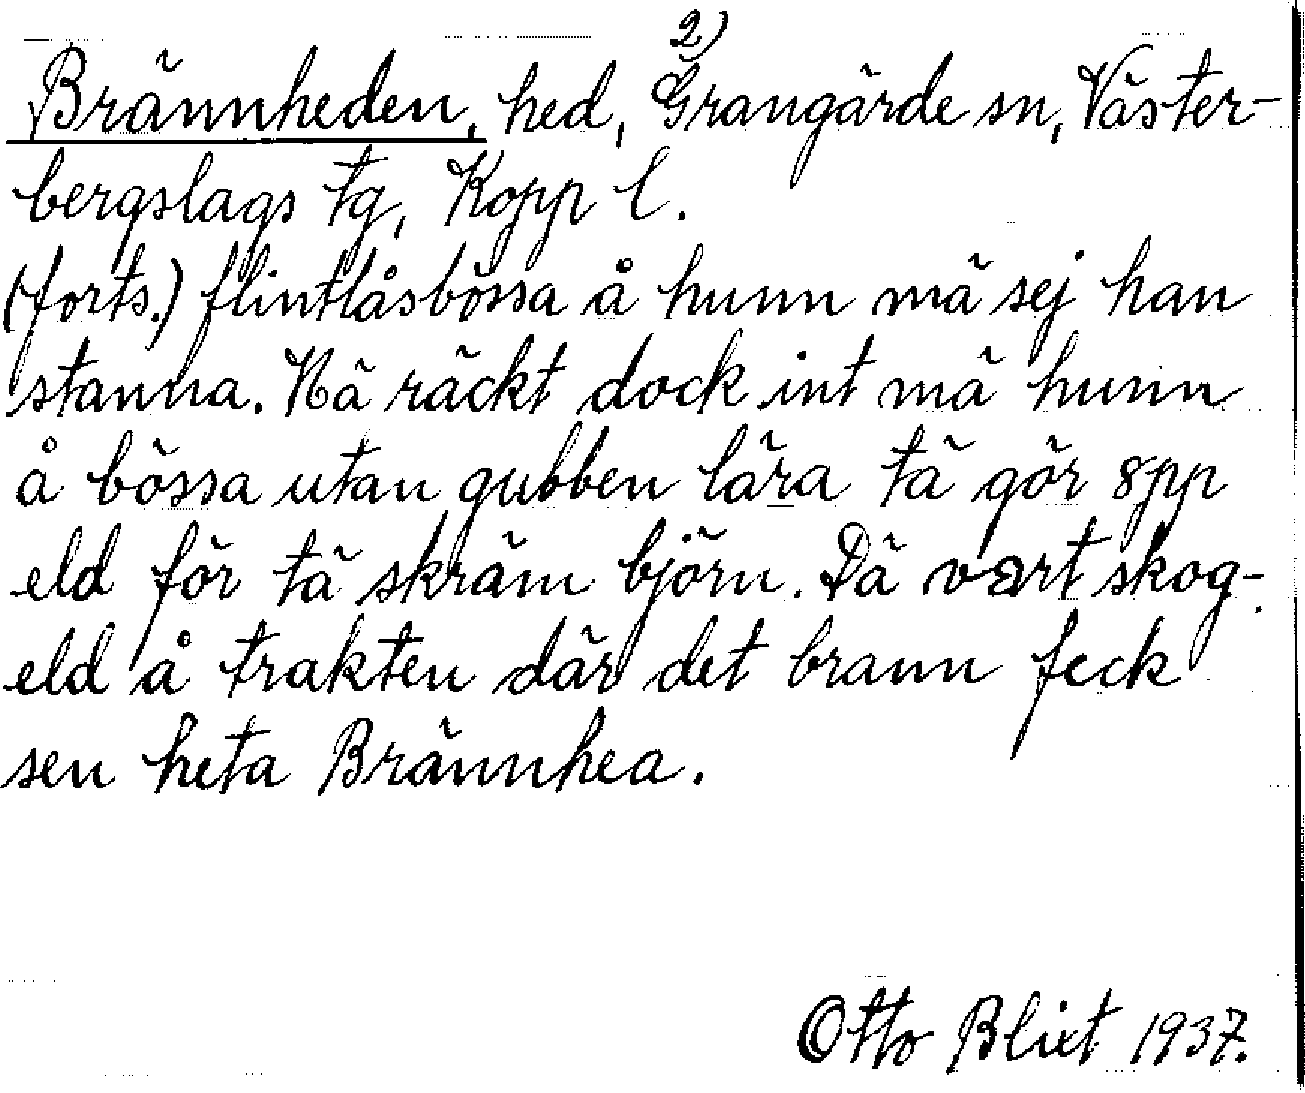 2)
Brännheden, hed, Grangärde sn, Väster-
bergslags tg, Kopp l.
(forts.) flintlåsbössa å hunn mä sej han
stanna. Nä räckt dock int mä hunn
å bössa utan gubben lära tä gör 8pp
eld för tä skräm björn. Dä vart skog-
eld å trakten där det brann feck
sen heta Brännhea.
Otto Blixt 1937.